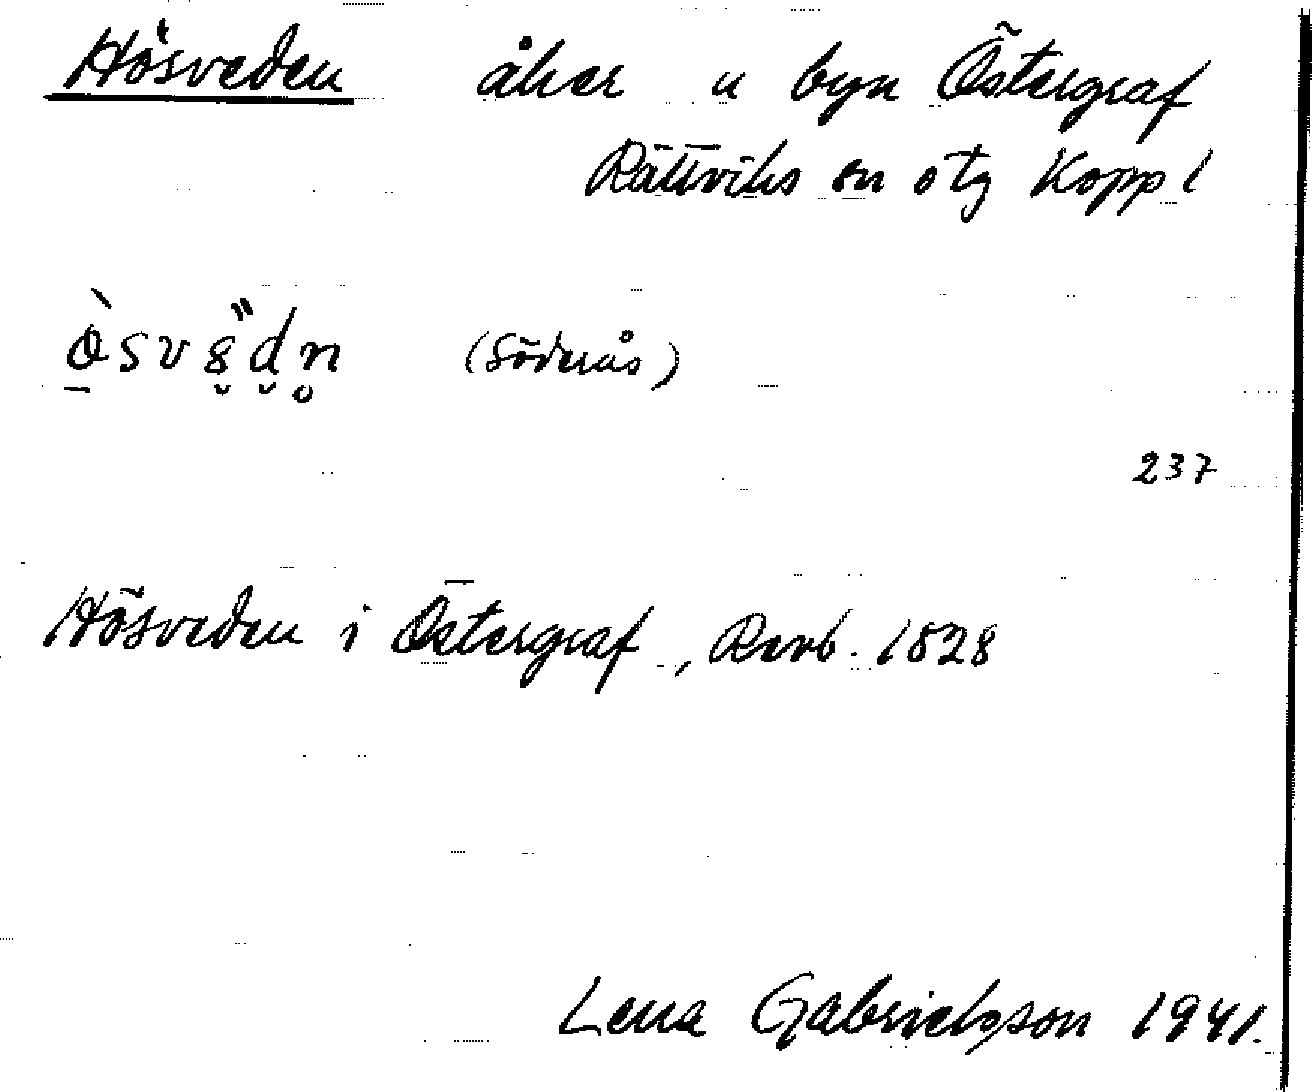 Hösveden åker u byn Östergraf
Rättviks sn o tg Kopp l
(Söderås)
237
Hösveden i Östergraf, Revb. 1828
Lena Gabrielsson 1941.